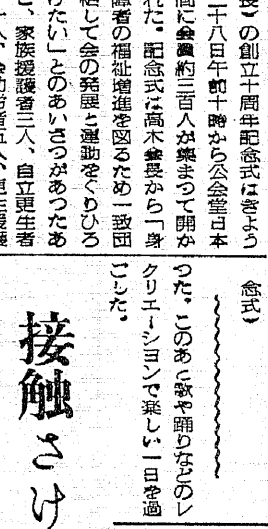 長）の創立十周年記念式はきよう
二十八日午前十時から公会堂日本
間に会員約三百人が集まつて開か
れた。記念式は高木会長から「身
障者の福祉増進を図るため一致団
結して会の発展と運動をくりひろ
げたい」とのあいさつがあつたあ
と、家族援護者三人、自立更生者
念式）
つた。このあと歌や踊りなどのレ
クリエーシヨンで楽しい一日を過
ごした。
接触さけ